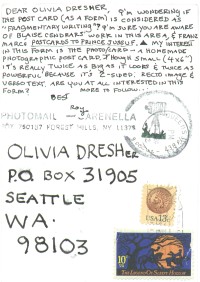 DEAR OLIVIA DRESHER, I'M WONDERING IF
THE POST CARD (AS A FORM) IS CONSIDERED AS
"FRAGMENTARY WRITING"? I'M SURE YOU ARE AWARE
OF BLAISE CENDRARS' WORK IN THIS AREA, & FRANZ
MARC'S POSTCARDS TO PRINCE JUSSUF. MY INTEREST
IN THIS FORM IS THE PHOTOCARD - A HOMEMADE
PHOTOGRAPHIC POST CARD. THOUGH SMALL (4x6")
IT'S REALLY TWICE AS BIG AS IT LOOKS & TWICE AS
POWERFUL BECAUSE IT'S 2-SIDED. RECTO IMAGE &
VERSO TEXT. ARE YOU AT ALL INTERESTED IN THIS
FORM? MORE TO FOLLOW...
BEST
Roy
PHOTOMAIL
FOREST HILLS, NY
OLIVIA DRESHER
P.O. BOX 31905
SEATTLE
WA.
98103
USA 13c
10c
THE LEGEND OF SLEEPY HOLLOW